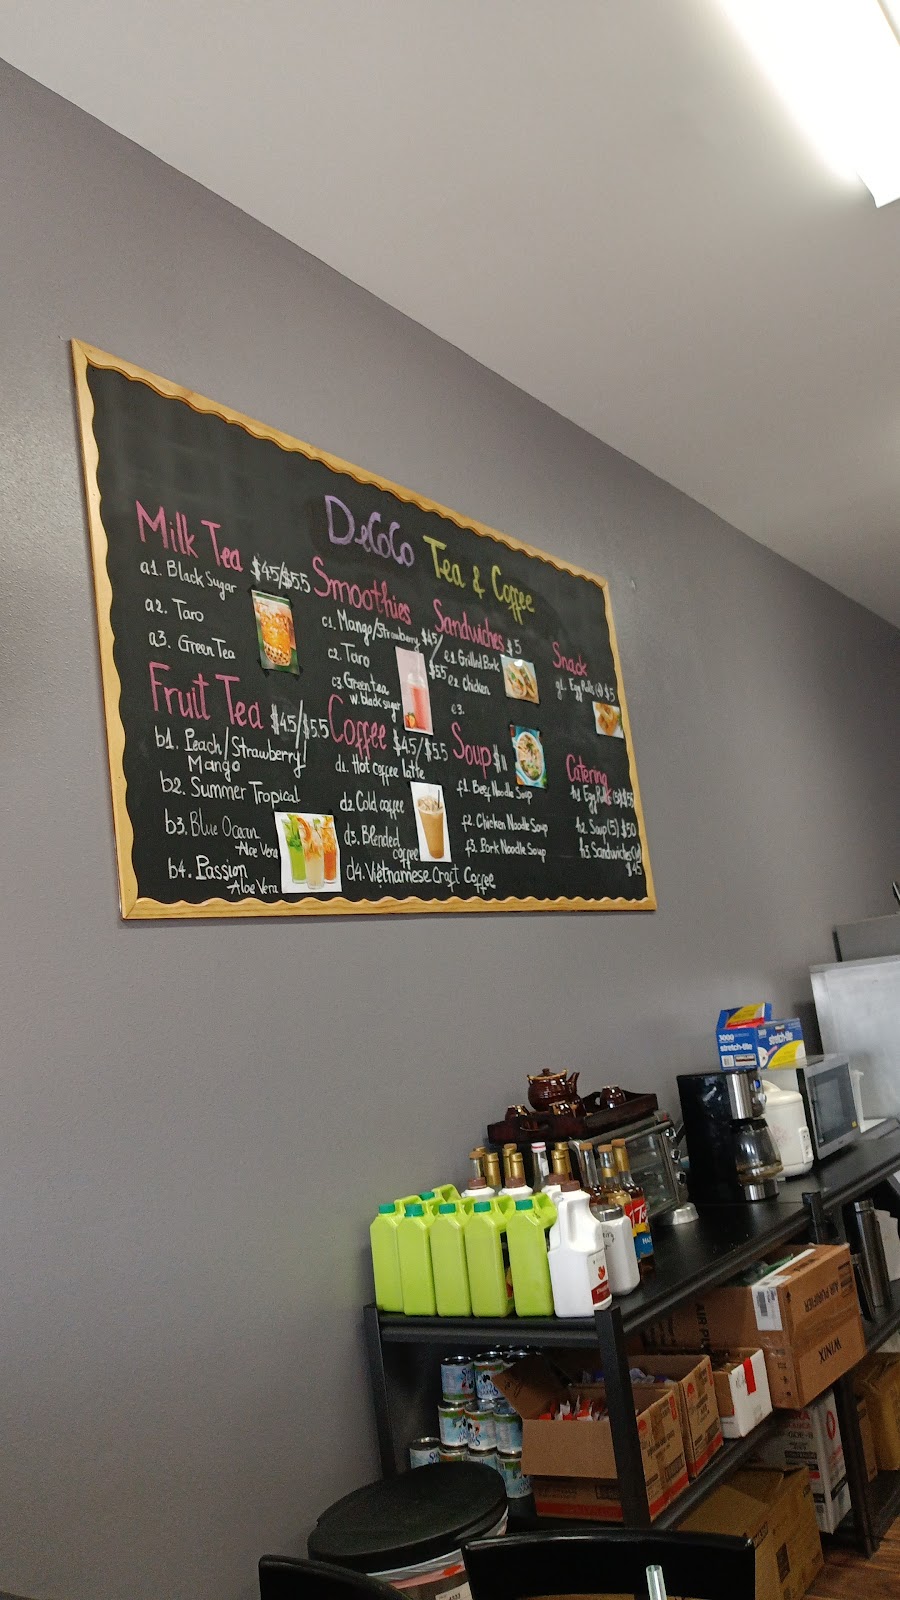 DeCoCo Tea & Coffee
Milk Tea $4.5/$5.5
a1. Black Sugar
a2. Taro
a3. Green Tea
Fruit Tea $4.5/$5.5
b1. Peach/Strawberry/
Mango
b2. Summer Tropical
b3. Blue Ocean
Aloe Vera
b4. Passion
Aloe Vera
Smoothies
c1. Mango/Strawberry $4.5/
$5.5
c2. Taro
c3. Green tea
w. black sugar
Coffee $4.5/$5.5
d1. Hot coffee latte
d2. Cold coffee
d3. Blended
coffee
d4. Vietnamese Craft Coffee
Sandwiches $5
e1. Grilled Pork
e2. Chicken
e3.
Soup $11
f1. Beef Noodle Soup
f2. Chicken Noodle Soup
f3. Pork Noodle Soup
Snack
g1. Egg Rolls (4) $5
Catering
h1. Egg Rolls
h2. Soup (5) $50
h3. Sandwiches
$45
3000
stretch-tite
stretch-tite
AIR PURIFIER
WINIX
AIR PURIFIER